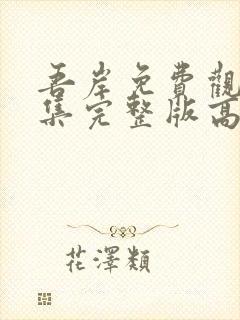 吾岸免費觀
集完整版高
花澤類